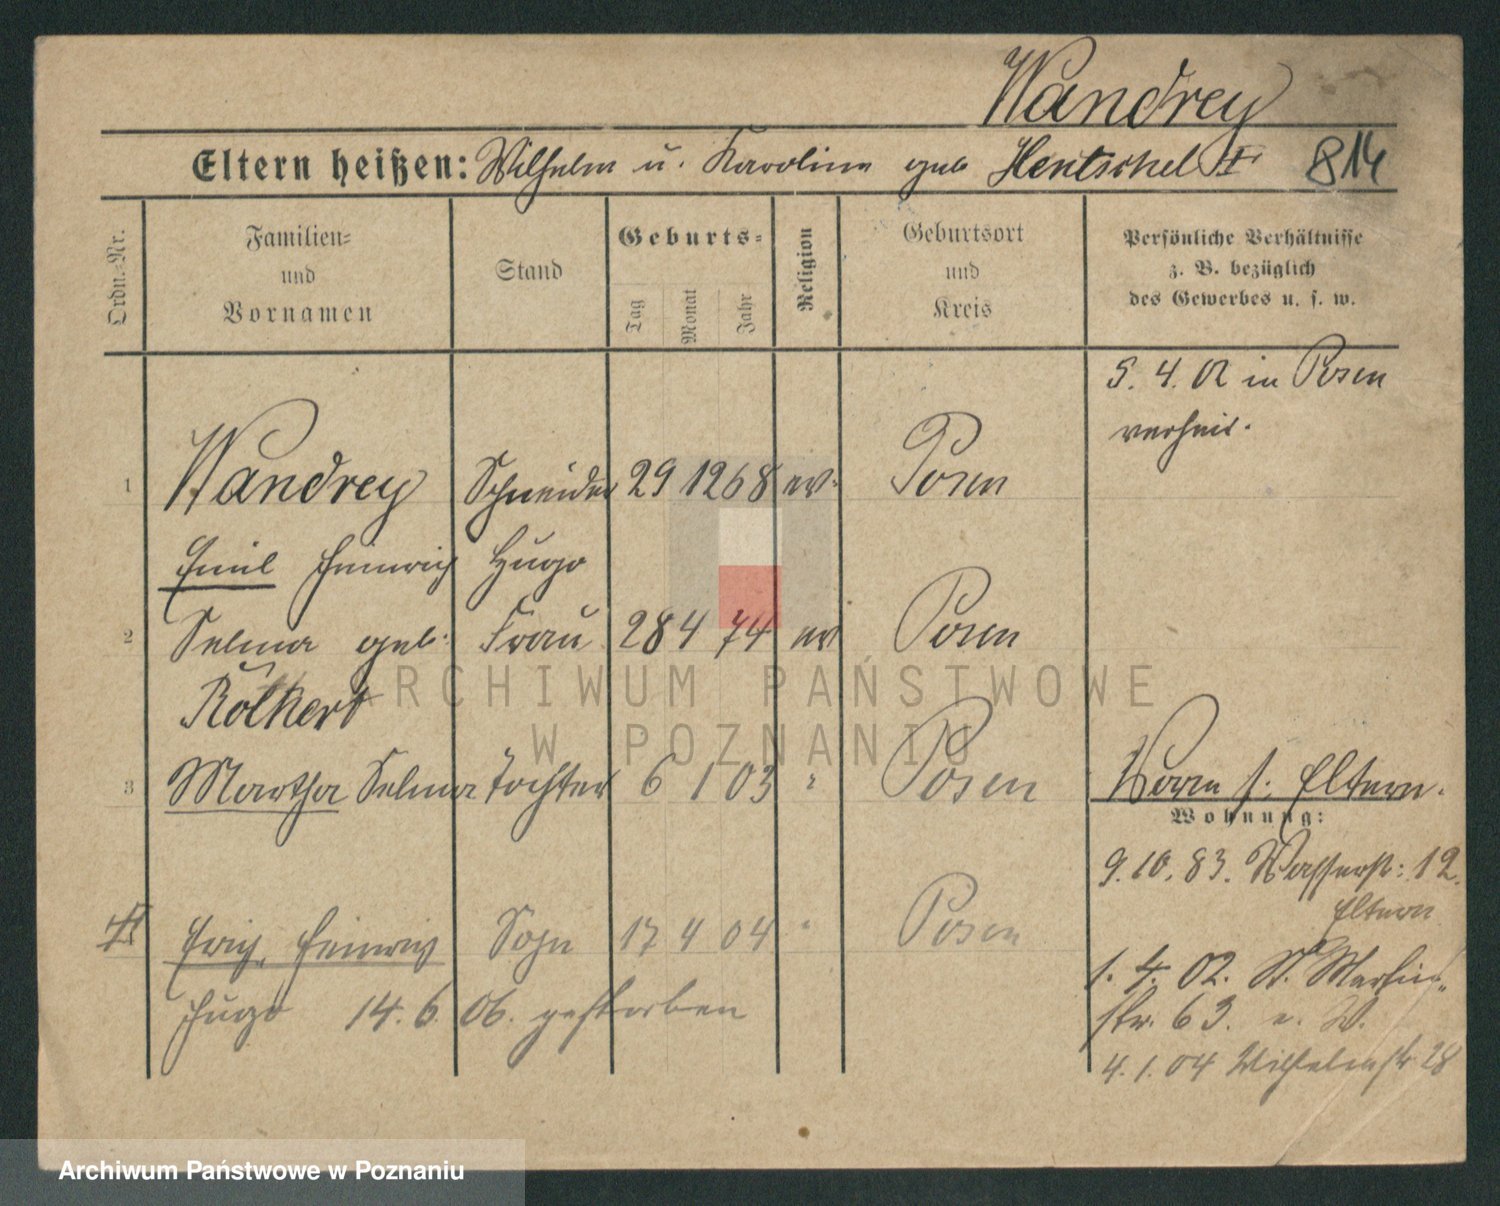 Wandrey
Eltern heißen: Wilhelm u. Karoline geb Hentschel 814
Ordn.-Nr.
Familien-
und
Vornamen
Stand
Geburts-
Tag
Monat
Jahr
Religion
Geburtsort
und
Kreis
Persönliche Verhältnisse
z. B. bezüglich
des Gewerbes u. s. w.
5. 4. 02 in Posen
verheir.
1 Wandrey Schneider 29 12 68 ev. Posen
Emil Heinrich Hugo
2 Selma geb. Frau 28 4 74 ev Posen
Rölkert
3 Martha Selma Tochter 6 1 03 " Posen
Vorm s. Eltern.
Wohnung:
9. 10. 83. Wasserstr: 12.
Eltern
Erich, Heinrich Sohn 17 4 04 " Posen
Hugo 14. 6. 06. gestorben
1. 4. 02. St. Martin-
str. 63. e. W.
4. 1. 04 Wilhelmstr 28
ARCHIWUM PAŃSTWOWE
W POZNANIU
Archiwum Państwowe w Poznaniu